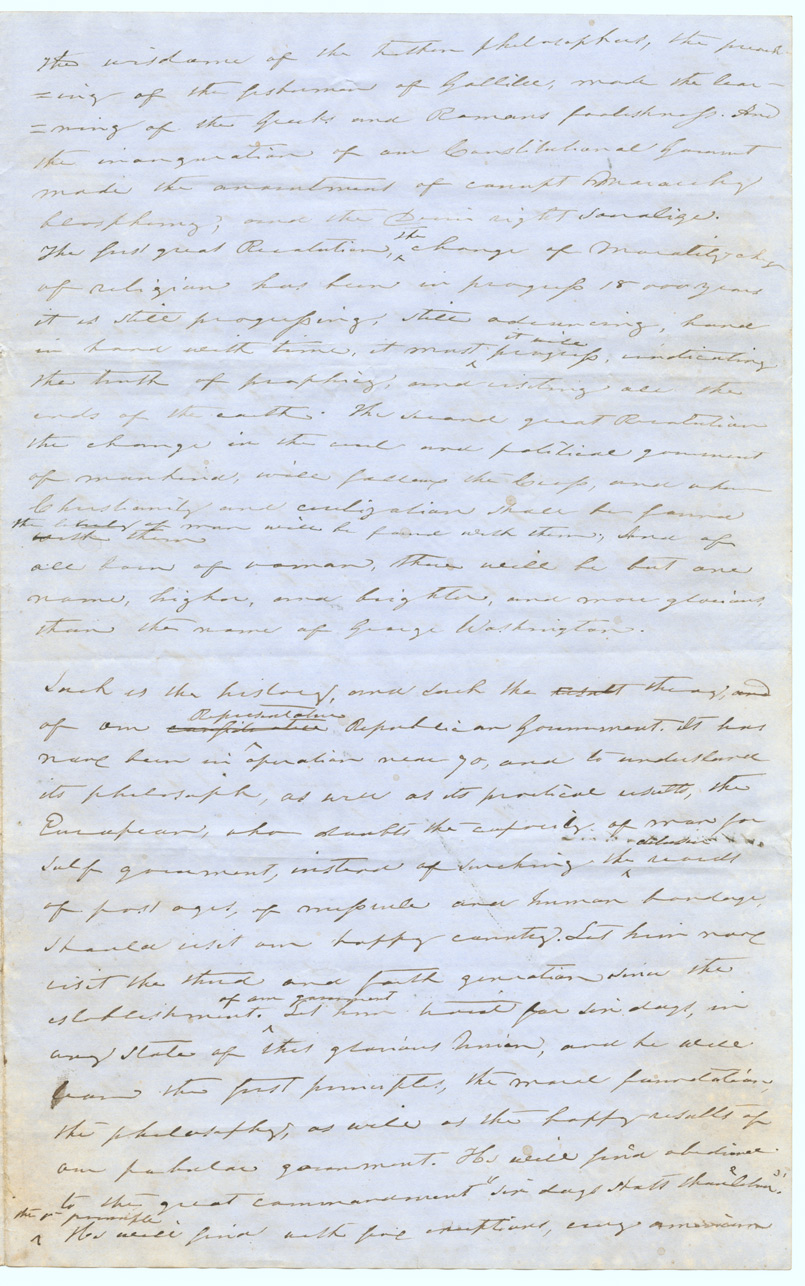 The wisdome of the heathen philosophers, the preach-
=ing of the fisherman of Gallilee, made the lear-
=ning of the Greeks and Romans foolishness. And
the inauguration of our Constitutional Goverment
made the anointment of corrupt Monarchy
blasphemy, and the Devine right
The first great Revolution, the change of Morality
of religion has been in progress 18 000 years
it is still progressing, still advancing, hand
in hand with time, it must it will progress, vindicating
the truth of prophicy, and visiting all the
ends of the earth. The second great Revolution
the change in the civil and political goverment
of mankind, will follow the Cross, and when
Christianity and civilization shall be found
the of man will be found with them; And of
with them
all born of woman, there will be but one
name, higher, and brighter, and more glorious,
than the name of George Washington.
Such is the history, and such the result theory, and
of our Representative Republican Government. It has
now been in operation near 70, and to understand
its philosoph, as well as its practical results, the
European, who doubts the capacity of man for
self goverment, instead of searching the records
of past ages, of misrule and human bondage,
should visit our happy country. Let him now
visit the third and forth generation since the
establishment of our government. Let him for six days, in
any State of this glorious Union, and he will
learn the first principles, the moral foundation,
the philosophy, as well as the happy results of
our popular goverment. He will find obedience
to the great commandment "six days shalt thou labor".
the 1st principle
He will find with few exceptions, every american